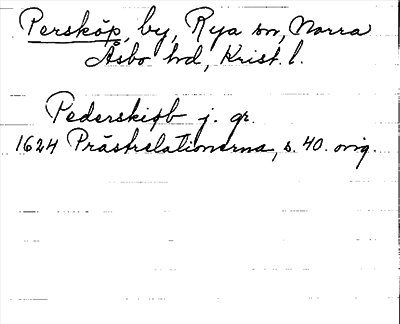 Persköp, by, Rya sn, Norra
Åsbo hd, Krist. l.
Pederskiøb j. gr.
1624 Prästrelationerna, s. 40. orig.